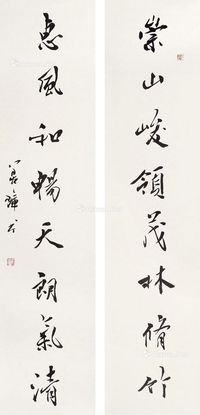 崇山峻領茂林脩竹
惠風和暢天朗氣清